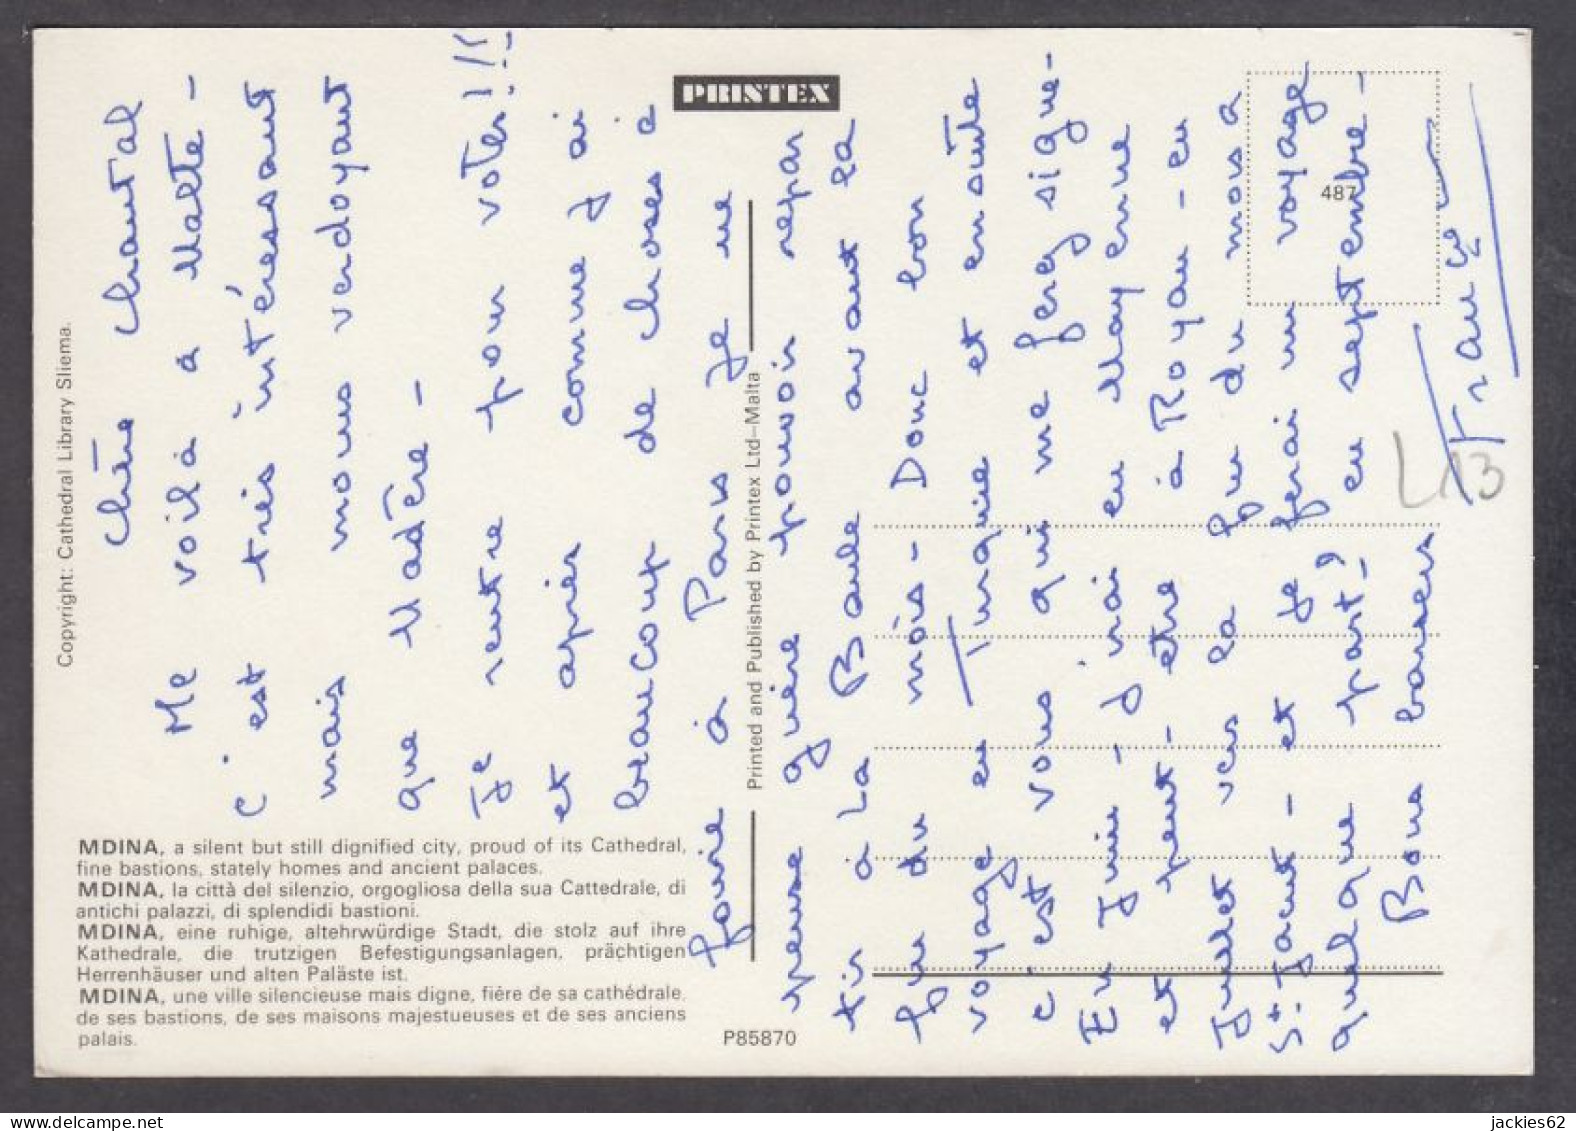 PRINTEX
487
Copyright: Cathedral Library Sliema.
Chère Chantal
Me voilà à Malte -
c'est très intéressant
mais moins verdoyant
que Madère -
Je rentre pour voter!!!
et après comme j'ai
beaucoup de choses à
faire à Paris je ne
pense guère pouvoir repar
tir à La Baule avant la
fin du mois - Donc bon
voyage en Turquie et ensuite
c'est vous qui me ferez signe -
En Juin - j'irai en Mayenne
et peut-être à Royan - en
Juillet vers la fin du mois à
St. Jacut - et je ferai un voyage
quelque part? en septembre -
Bons baisers
L13
MDINA, a silent but still dignified city, proud of its Cathedral,
fine bastions, stately homes and ancient palaces.
MDINA, la città del silenzio, orgogliosa della sua Cattedrale, di
antichi palazzi, di splendidi bastioni.
MDINA, eine ruhige, altehrwürdige Stadt, die stolz auf ihre
Kathedrale, die trutzigen Befestigungsanlagen, prächtigen
Herrenhäuser und alten Paläste ist.
MDINA, une ville silencieuse mais digne, fière de sa cathédrale,
de ses bastions, de ses maisons majestueuses et de ses anciens
palais.
Printed and Published by Printex Ltd–Malta
P85870
delcampe.net
jackies62